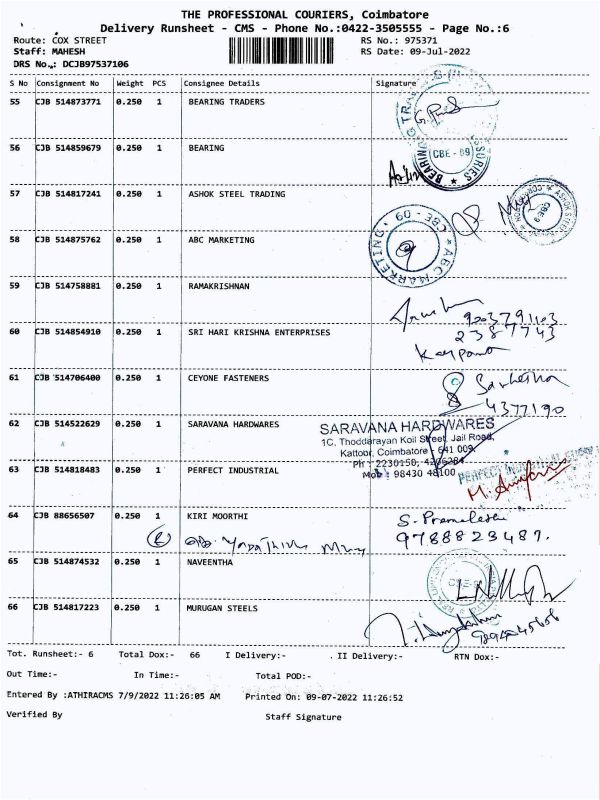 THE PROFESSIONAL COURIERS, Coimbatore
Delivery Runsheet - CMS - Phone No.:0422-3505555 - Page No.:6
Route: COX STREET RS No.: 975371
Staff: MAHESH RS Date: 09-Jul-2022
DRS No.: DCJB97537106
S No Consignment No Weight PCS Consignee Details Signature
55 CJB 514873771 0.250 1 BEARING TRADERS
56 CJB 514859679 0.250 1 BEARING
CBE - 09
57 CJB 514817241 0.250 1 ASHOK STEEL TRADING
CBE 9
58 CJB 514875762 0.250 1 ABC MARKETING
* ABC MARKETING * CBE - 09
59 CJB 514758881 0.250 1 RAMAKRISHNAN
9003791103
60 CJB 514854910 0.250 1 SRI HARI KRISHNA ENTERPRISES
2387743
61 CJB 514706400 0.250 1 CEYONE FASTENERS
4377190
62 CJB 514522629 0.250 1 SARAVANA HARDWARES
SARAVANA HARDWARES
1C, Thoddarayan Koil Street, Jail Road,
Kattoor, Coimbatore - 641 009.
Ph : 2230150, 4206284
Mob : 98430 48100
63 CJB 514818483 0.250 1 PERFECT INDUSTRIAL
64 CJB 88656507 0.250 1 KIRI MOORTHI
9788823487.
65 CJB 514874532 0.250 1 NAVEENTHA
66 CJB 514817223 0.250 1 MURUGAN STEELS
Tot. Runsheet:- 6 Total Dox:- 66 I Delivery:- II Delivery:- RTN Dox:-
Out Time:- In Time:- Total POD:-
Entered By :ATHIRACMS 7/9/2022 11:26:05 AM Printed On: 09-07-2022 11:26:52
Verified By Staff Signature